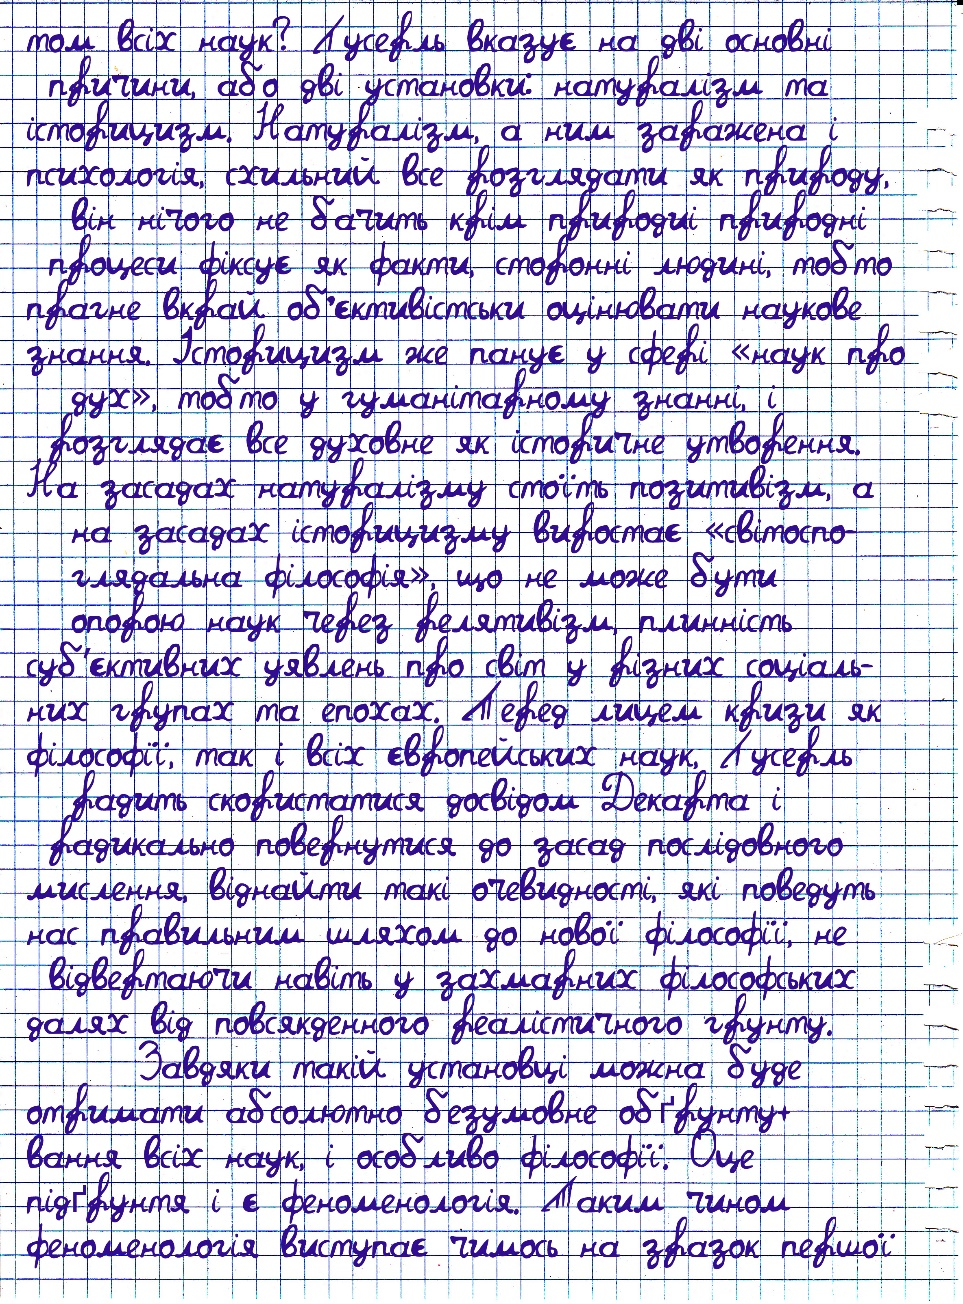 том всіх наук? Гусерль вказує на дві основні
причини, або дві установки: натуралізм та
історицизм. Натуралізм, а ним заражена і
психологія, схильний все розглядати як природу,
він нічого не бачить крім природиі природні
процеси фіксує як факти, сторонні людині, тобто
прагне вкрай об'єктивістськи оцінювати наукове
знання. Історицизм же панує у сфері «наук про
дух», тобто у гуманітарному знанні, і
розглядає все духовне як історичне утворення.
На засадах натуралізму стоїть позитивізм, а
на засадах історицизму виростає «світоспо-
глядальна філософія», що не може бути
опорою наук через релятивізм, плинність
суб'єктивних уявлень про світ у різних соціаль-
них групах та епохах. Перед лицем кризи як
філософії, так і всіх європейських наук, Гусерль
радить скористатися досвідом Декарта і
радикально повернутися до засад послідовного
мислення, віднайти такі очевидності, які поведуть
нас правильним шляхом до нової філософії, не
відвертаючи навіть у захмарних філософських
далях від повсякденного реалістичного грунту.
Завдяки такій установці можна буде
отримати абсолютно безумовне обґрунту-
вання всіх наук, і особливо філософії. Оце
підґрунтя і є феноменологія. Таким чином
феноменологія виступає чимось на зразок першої